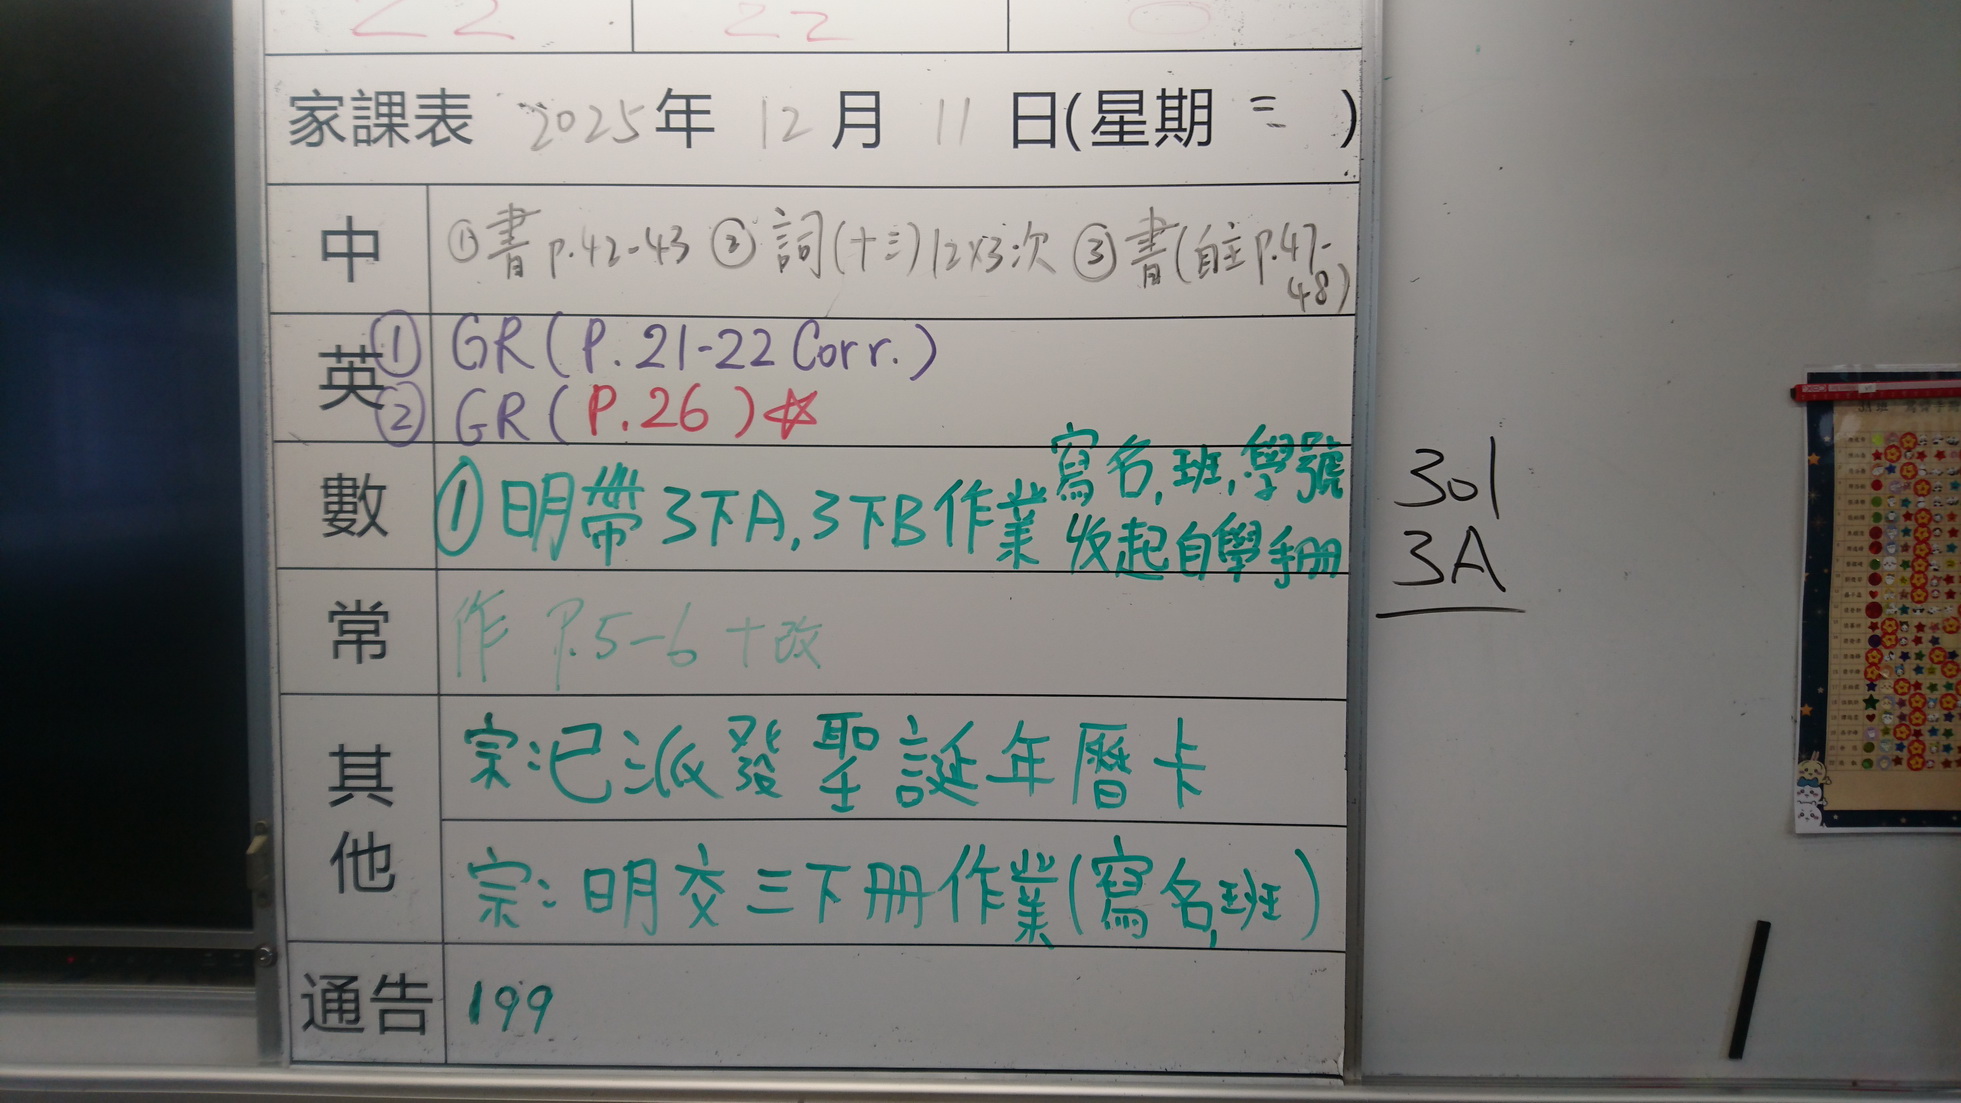 22 22 0
家課表 2025年 12月 11日(星期三)
中 ①書 p.42-43 ②詞(十三)12x3次 ③書(自主p.47-
48)
英 ① GR(P.21-22 Corr.)
② GR(P.26)☆
數 ①明帶3下A,3下B作業 寫名,班,學號
收起自學手冊
常 作 P.5-6 十改
其他 宗:已派發聖誕年曆卡
宗:明交三下冊作業(寫名,班)
通告 199
301
3A